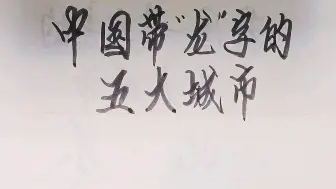 中国带"龙"字的
五大城市